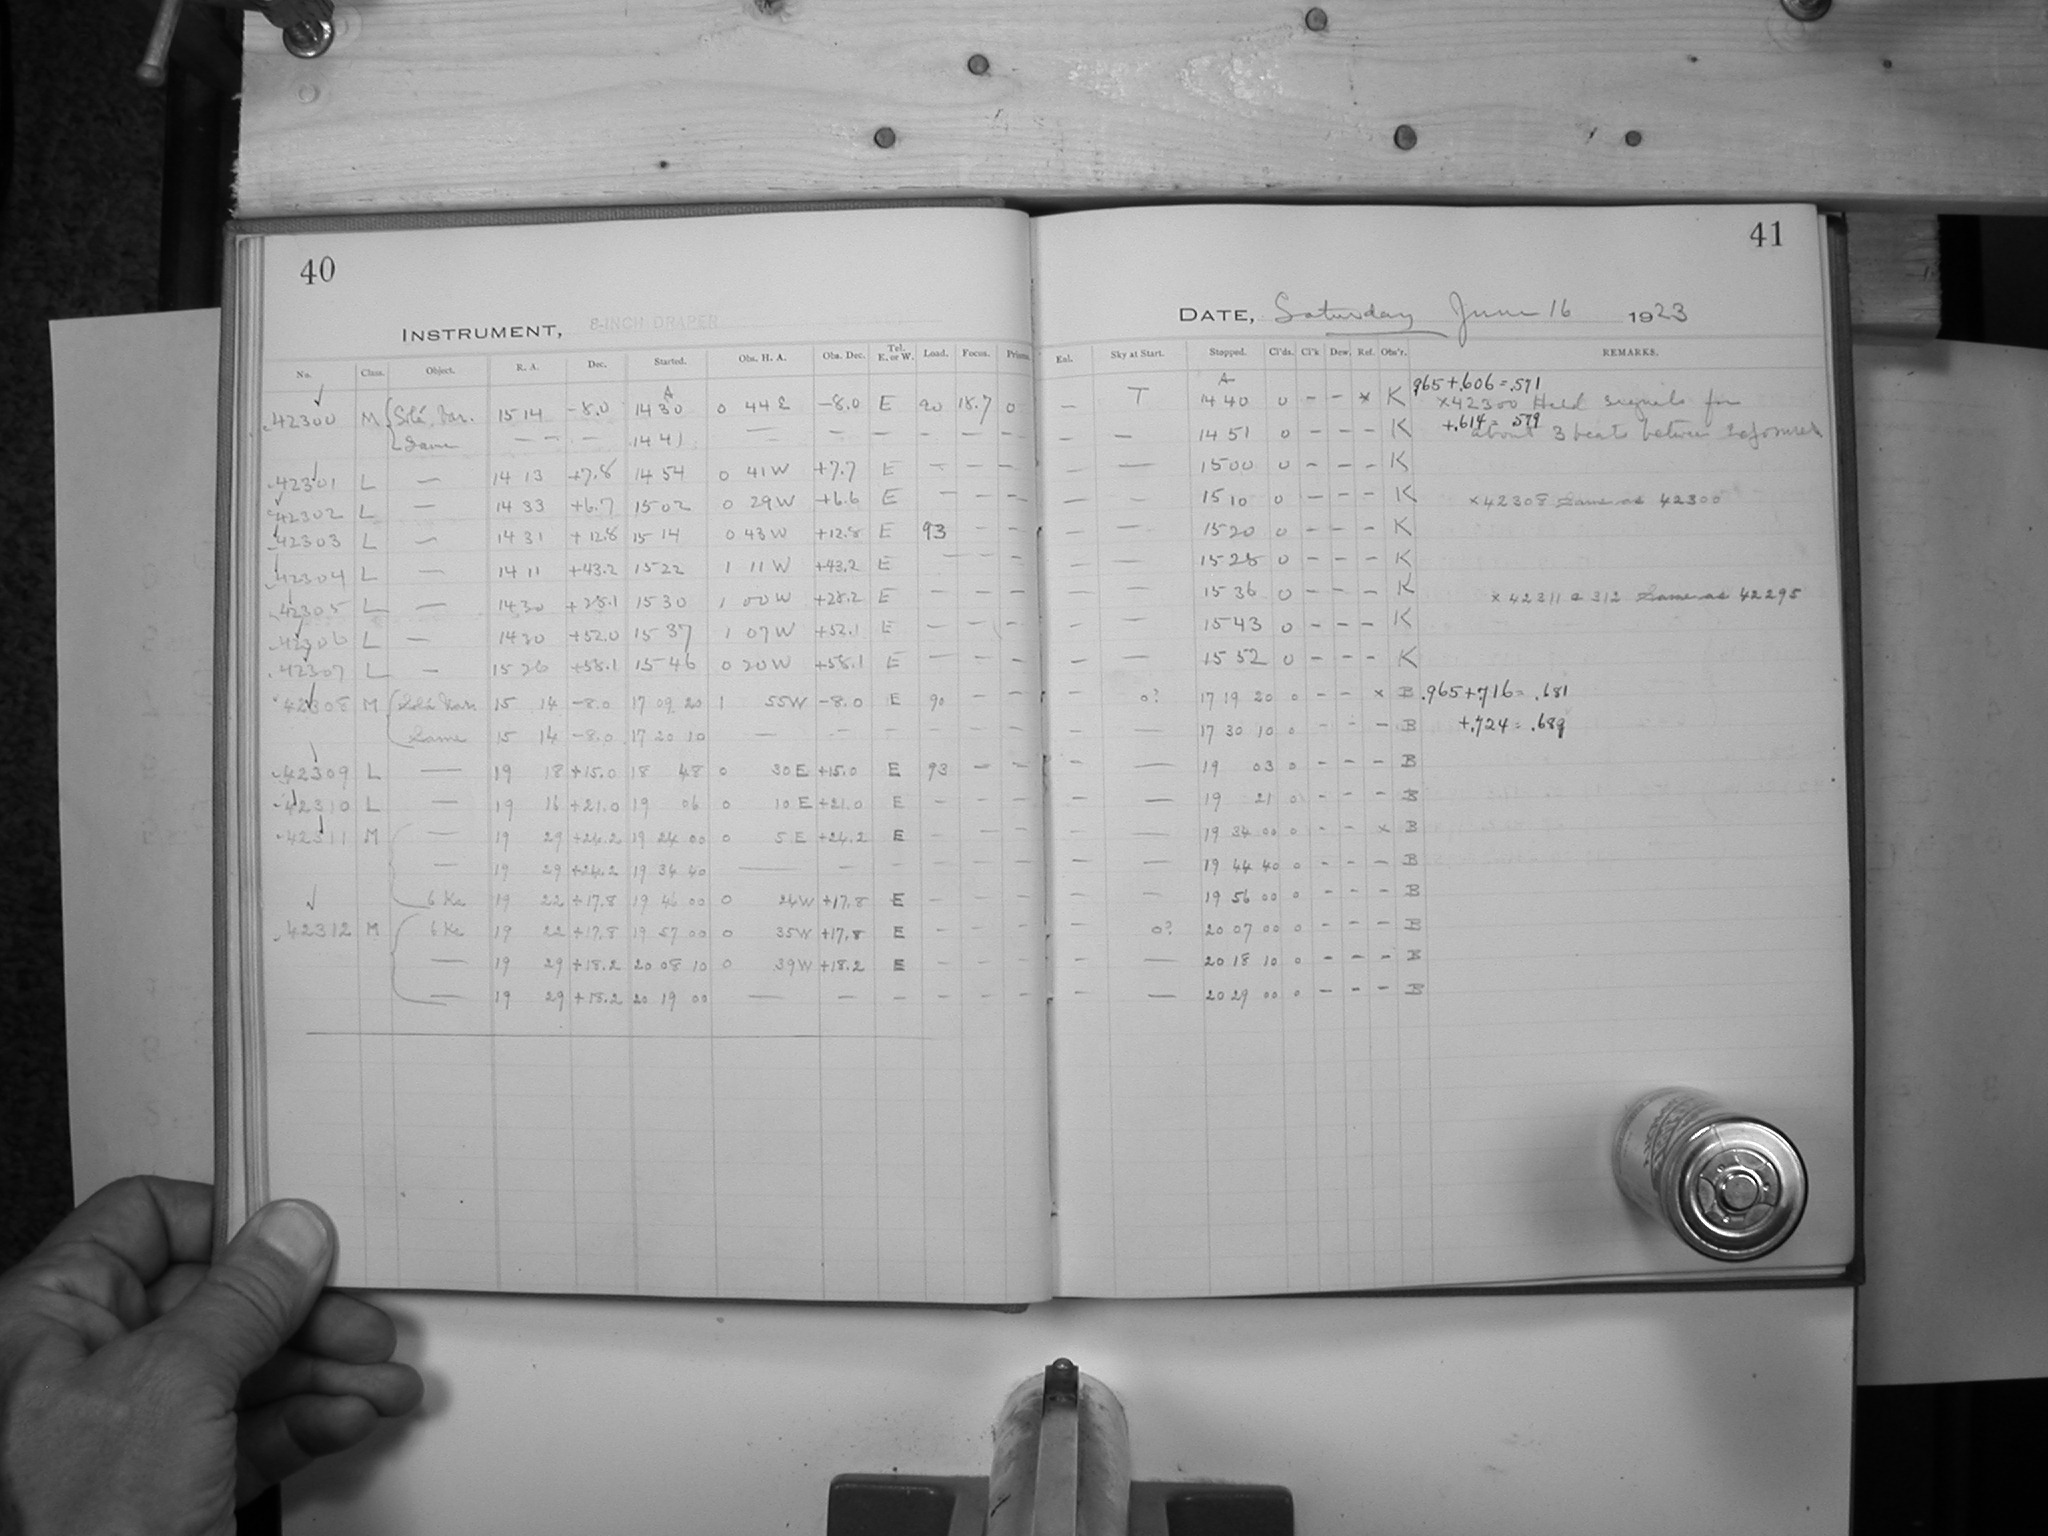 40
INSTRUMENT, 8-INCH DRAPER
No. Class. Object. R. A. Dec. Started. Obs. H. A. Obs. Dec. Tel. E. or W. Load. Focus. Prism.
A
42300 M 15 14 -8.0 14 30 0 44 E -8.0 E 90 18.7 0
Same — — — 14 41 — — — — — —
42301 L — 14 13 +7.8 14 54 0 41 W +7.7 E — — —
42302 L — 14 33 +6.7 15 02 0 29 W +6.6 E — — —
42303 L — 14 31 +12.8 15 14 0 43 W +12.8 E 93 — —
42304 L — 14 11 +43.2 15 22 1 11 W +43.2 E — — —
42305 L — 14 30 +28.1 15 30 1 00 W +28.2 E — — —
42306 L — 14 20 +52.0 15 37 1 07 W +52.1 E — — —
42307 L — 15 26 +58.1 15 46 0 20 W +58.1 E — — —
42308 M 15 14 -8.0 17 09 20 1 55 W -8.0 E 90 — —
Same 15 14 -8.0 17 20 10 — — — — — —
42309 L — 19 18 +15.0 18 48 0 30 E +15.0 E 93 — —
42310 L — 19 16 +21.0 19 06 0 10 E +21.0 E — — —
42311 M — 19 29 +24.2 19 24 00 0 5 E +24.2 E — — —
— 19 29 +24.2 19 34 40 — — — — — —
6 Ke 19 22 +17.8 19 46 00 0 24 W +17.8 E — — —
42312 M 6 Ke 19 22 +17.8 19 57 00 0 35 W +17.8 E — — —
— 19 29 +18.2 20 08 10 0 39 W +18.2 E — — —
— 19 29 +18.2 20 19 00 — — — — — —
41
DATE, Saturday June 16 1923
Eal. Sky at Start. Stopped. Cl'ds. Cl'k Dew. Ref. Obs'r. REMARKS.
A .965+.606=.571
— T 14 40 0 — — x K x42300 Held signals for
+.614=.579
— — 14 51 0 — — — K about 3 beats between exposures
— — 15 00 0 — — — K
— — 15 10 0 — — — K x42308 Same as 42300
— — 15 20 0 — — — K
— — 15 28 0 — — — K
— — 15 36 0 — — — K x42311 & 312 Same as 42295
— — 15 43 0 — — — K
— — 15 52 0 — — — K
— 0? 17 19 20 0 — — x B .965+.716=.681
— — 17 30 10 0 — — — B +.724=.689
— — 19 03 0 — — — B
— — 19 21 0 — — — B
— — 19 34 00 0 — — x B
— — 19 44 40 0 — — — B
— — 19 56 00 0 — — — B
— 0? 20 07 00 0 — — — B
— — 20 18 10 0 — — — B
— — 20 29 00 0 — — — B